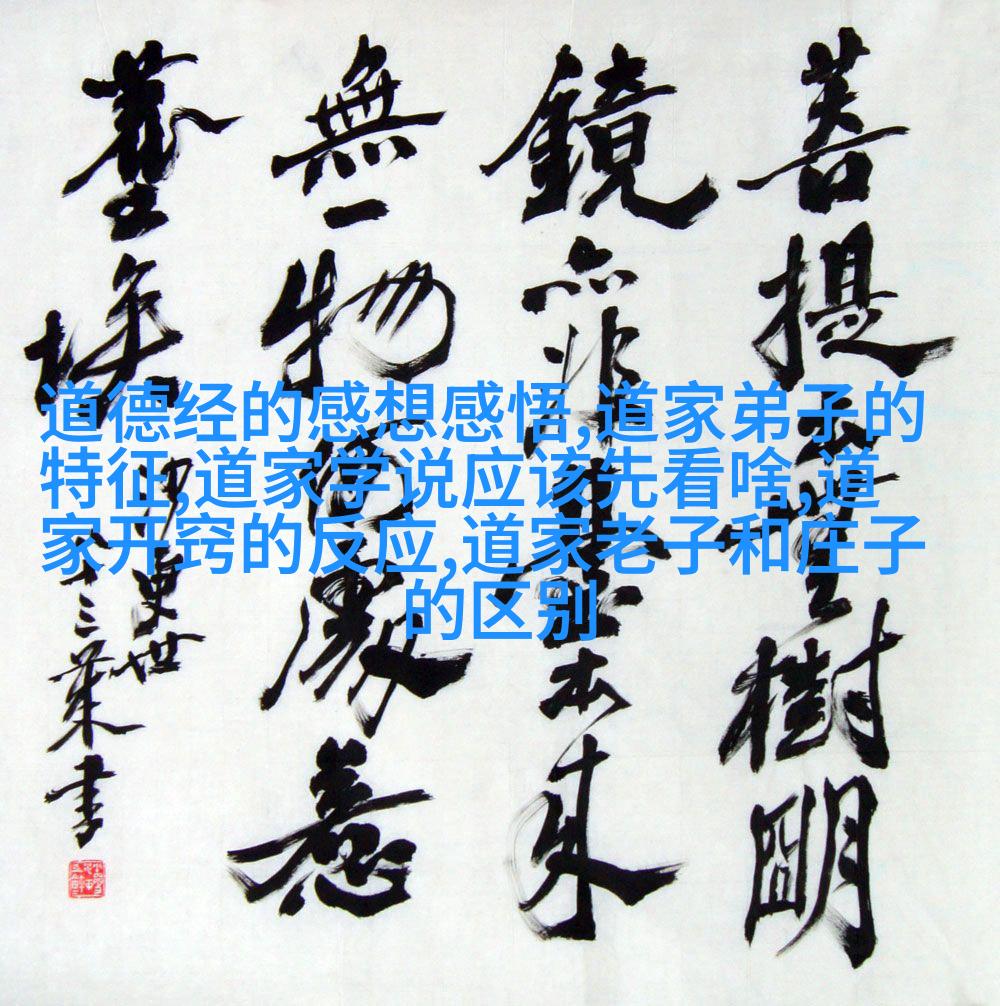 道德经的感想感悟,道家弟子的
特征,道家学说应该先看啥,道
家开窍的反应,道家老子和庄子
的区别
菩提樹明
鏡亦非臺本来
無一物何處惹
塵埃